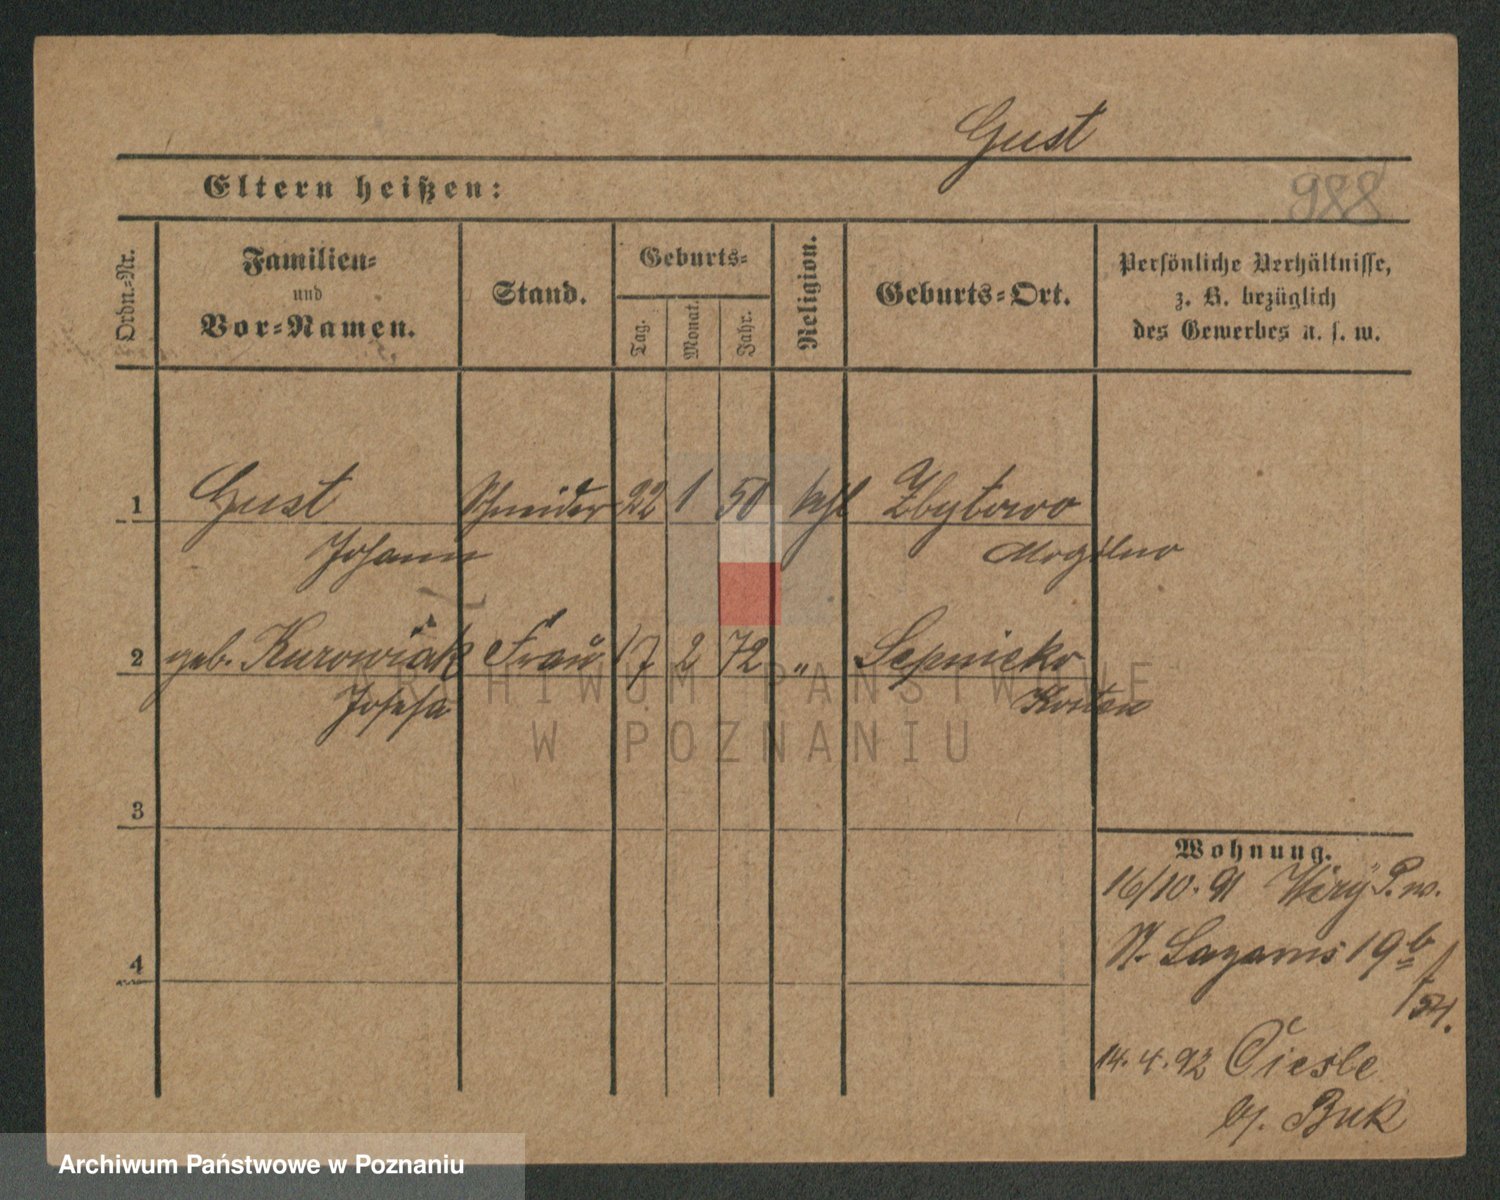 Gust
Eltern heißen:
988
Ordn.-Nr.
Familien-
und
Vor-Namen.
Stand.
Geburts-
Tag.
Monat.
Jahr.
Religion.
Geburts-Ort.
Persönliche Verhältnisse,
z. B. bezüglich
des Gewerbes u. s. w.
1 Gust Schneider 22 1 50 kath Zbytowo
Johann Mogilno
2 geb. Kurowiak Frau 17 2 72 " Sepnicko
Josefa Kosten
ARCHIWUM PAŃSTWOWE
W POZNANIU
3
4
Wohnung.
16/10. 91 Wiry P. w.
St. Lazarus 19 b
/54.
14. 4. 92 Ciesle
b/. Buk
Archiwum Państwowe w Poznaniu